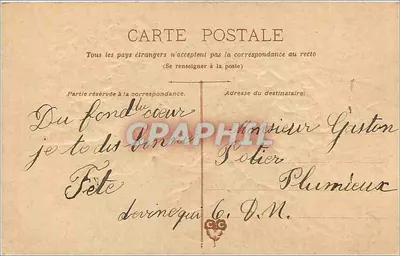 CARTE POSTALE
Tous les pays étrangers n'acceptent pas la correspondance au recto
(Se renseigner à la poste)
Partie réservée à la correspondance.
Adresse du destinataire.
Du fond du cœur
je te dis bonne
Fête
devine qui C. D. N.
Monsieur Gaston
Potier
Plumieux
CPAPHIL
C C